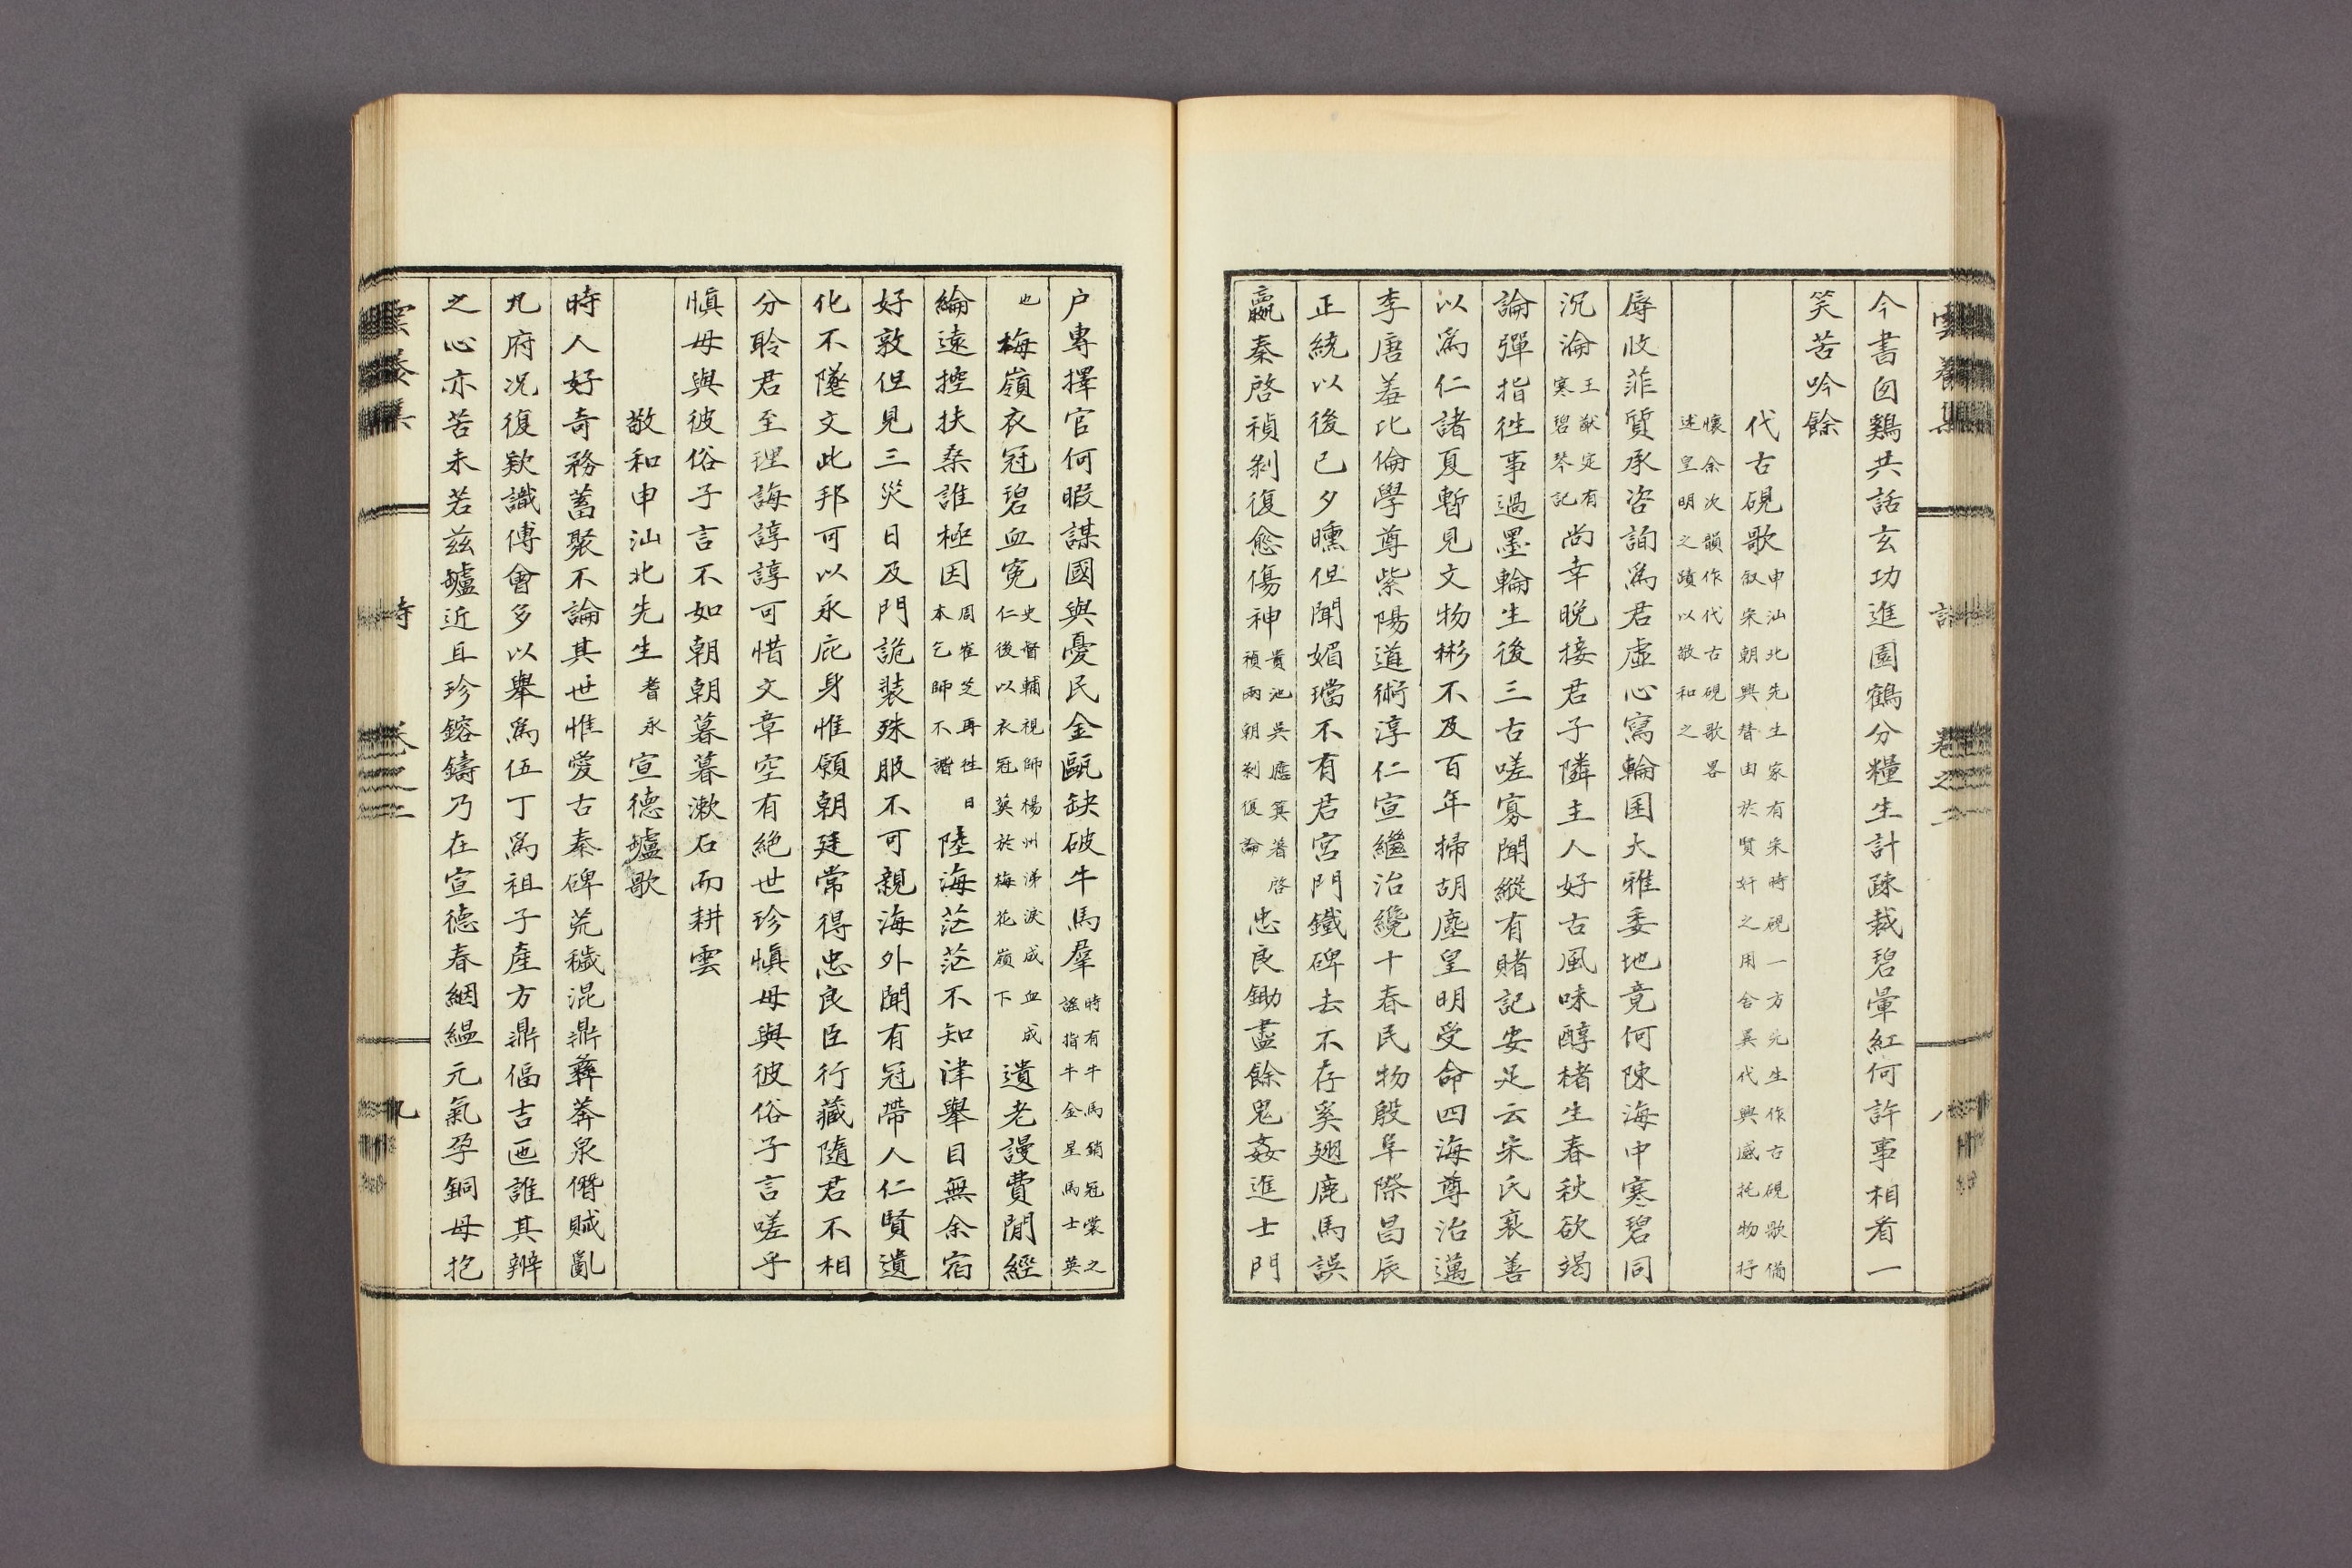 今書囱鷄共話玄功進園鶴分糧生計疎裁碧暈紅何許事相看一
笑苦吟餘
代古硯歌
申汕北先生家有宋時硯一方先生作古硯歌備
叙宋朝興替由於賢奸之用舍異代興感托物抒
懷余次韻作代古硯歌畧
述皇明之蹟以敬和之
辱收菲質承咨詢爲君虛心寫輪囷大雅委地竟何陳海中寒碧同
沉淪
王猷定有
寒碧琴記
尚幸晚接君子隣主人好古風味醇楮生春秋欲竭
論彈指往事過墨輪生後三古嗟寡聞縱有賭記安足云宋氏衰善
以爲仁諸夏暫見文物彬不及百年掃胡塵皇明受命四海尊治邁
李唐羞比倫學尊紫陽道術淳仁宣繼治纔十春民物殷阜際昌辰
正統以後已夕曛但聞媚璫不有君宮門鐵碑去不存奚翅鹿馬誤
嬴秦啓禎剝復愈傷神
貴池吳應箕著啓
禎兩朝剝復論
忠良鋤盡餘鬼姦進士門
户專擇官何暇謀國與憂民金甌缺破牛馬羣
時有牛馬銷冠裳之
謠指牛金星馬士英
也
梅嶺衣冠碧血寃
史督輔視師楊州涕淚成血成
仁後以衣冠葬於梅花嶺下
遺老謾費閒經
綸遠控扶桒誰極因
周崔芝再徃日
本乞師不諧
陸海茫茫不知津舉目無余宿
好敦但見三災日及門詭裝殊服不可親海外聞有冠帶人仁賢遺
化不墜文此邦可以永庇身惟願朝廷常得忠良臣行藏隨君不相
分聆君至理誨諄諄可惜文章空有絶世珍愼毋與彼俗子言嗟乎
愼毋與彼俗子言不如朝朝暮暮漱石而耕雲
敬和申汕北先生耆永宣德壚歌
時人好奇務蓄聚不論其世惟愛古秦碑荒穢混鼎彞莽泉僭賊亂
九府况復欵識傅會多以舉爲伍丁爲祖子產方鼎偪吉匜誰其辨
之心亦苦未若茲壚近且珍鎔鑄乃在宣德春絪縕元氣孕銅母抱
雲養集 詩 卷之二 八
雲養集 詩 卷之二 九